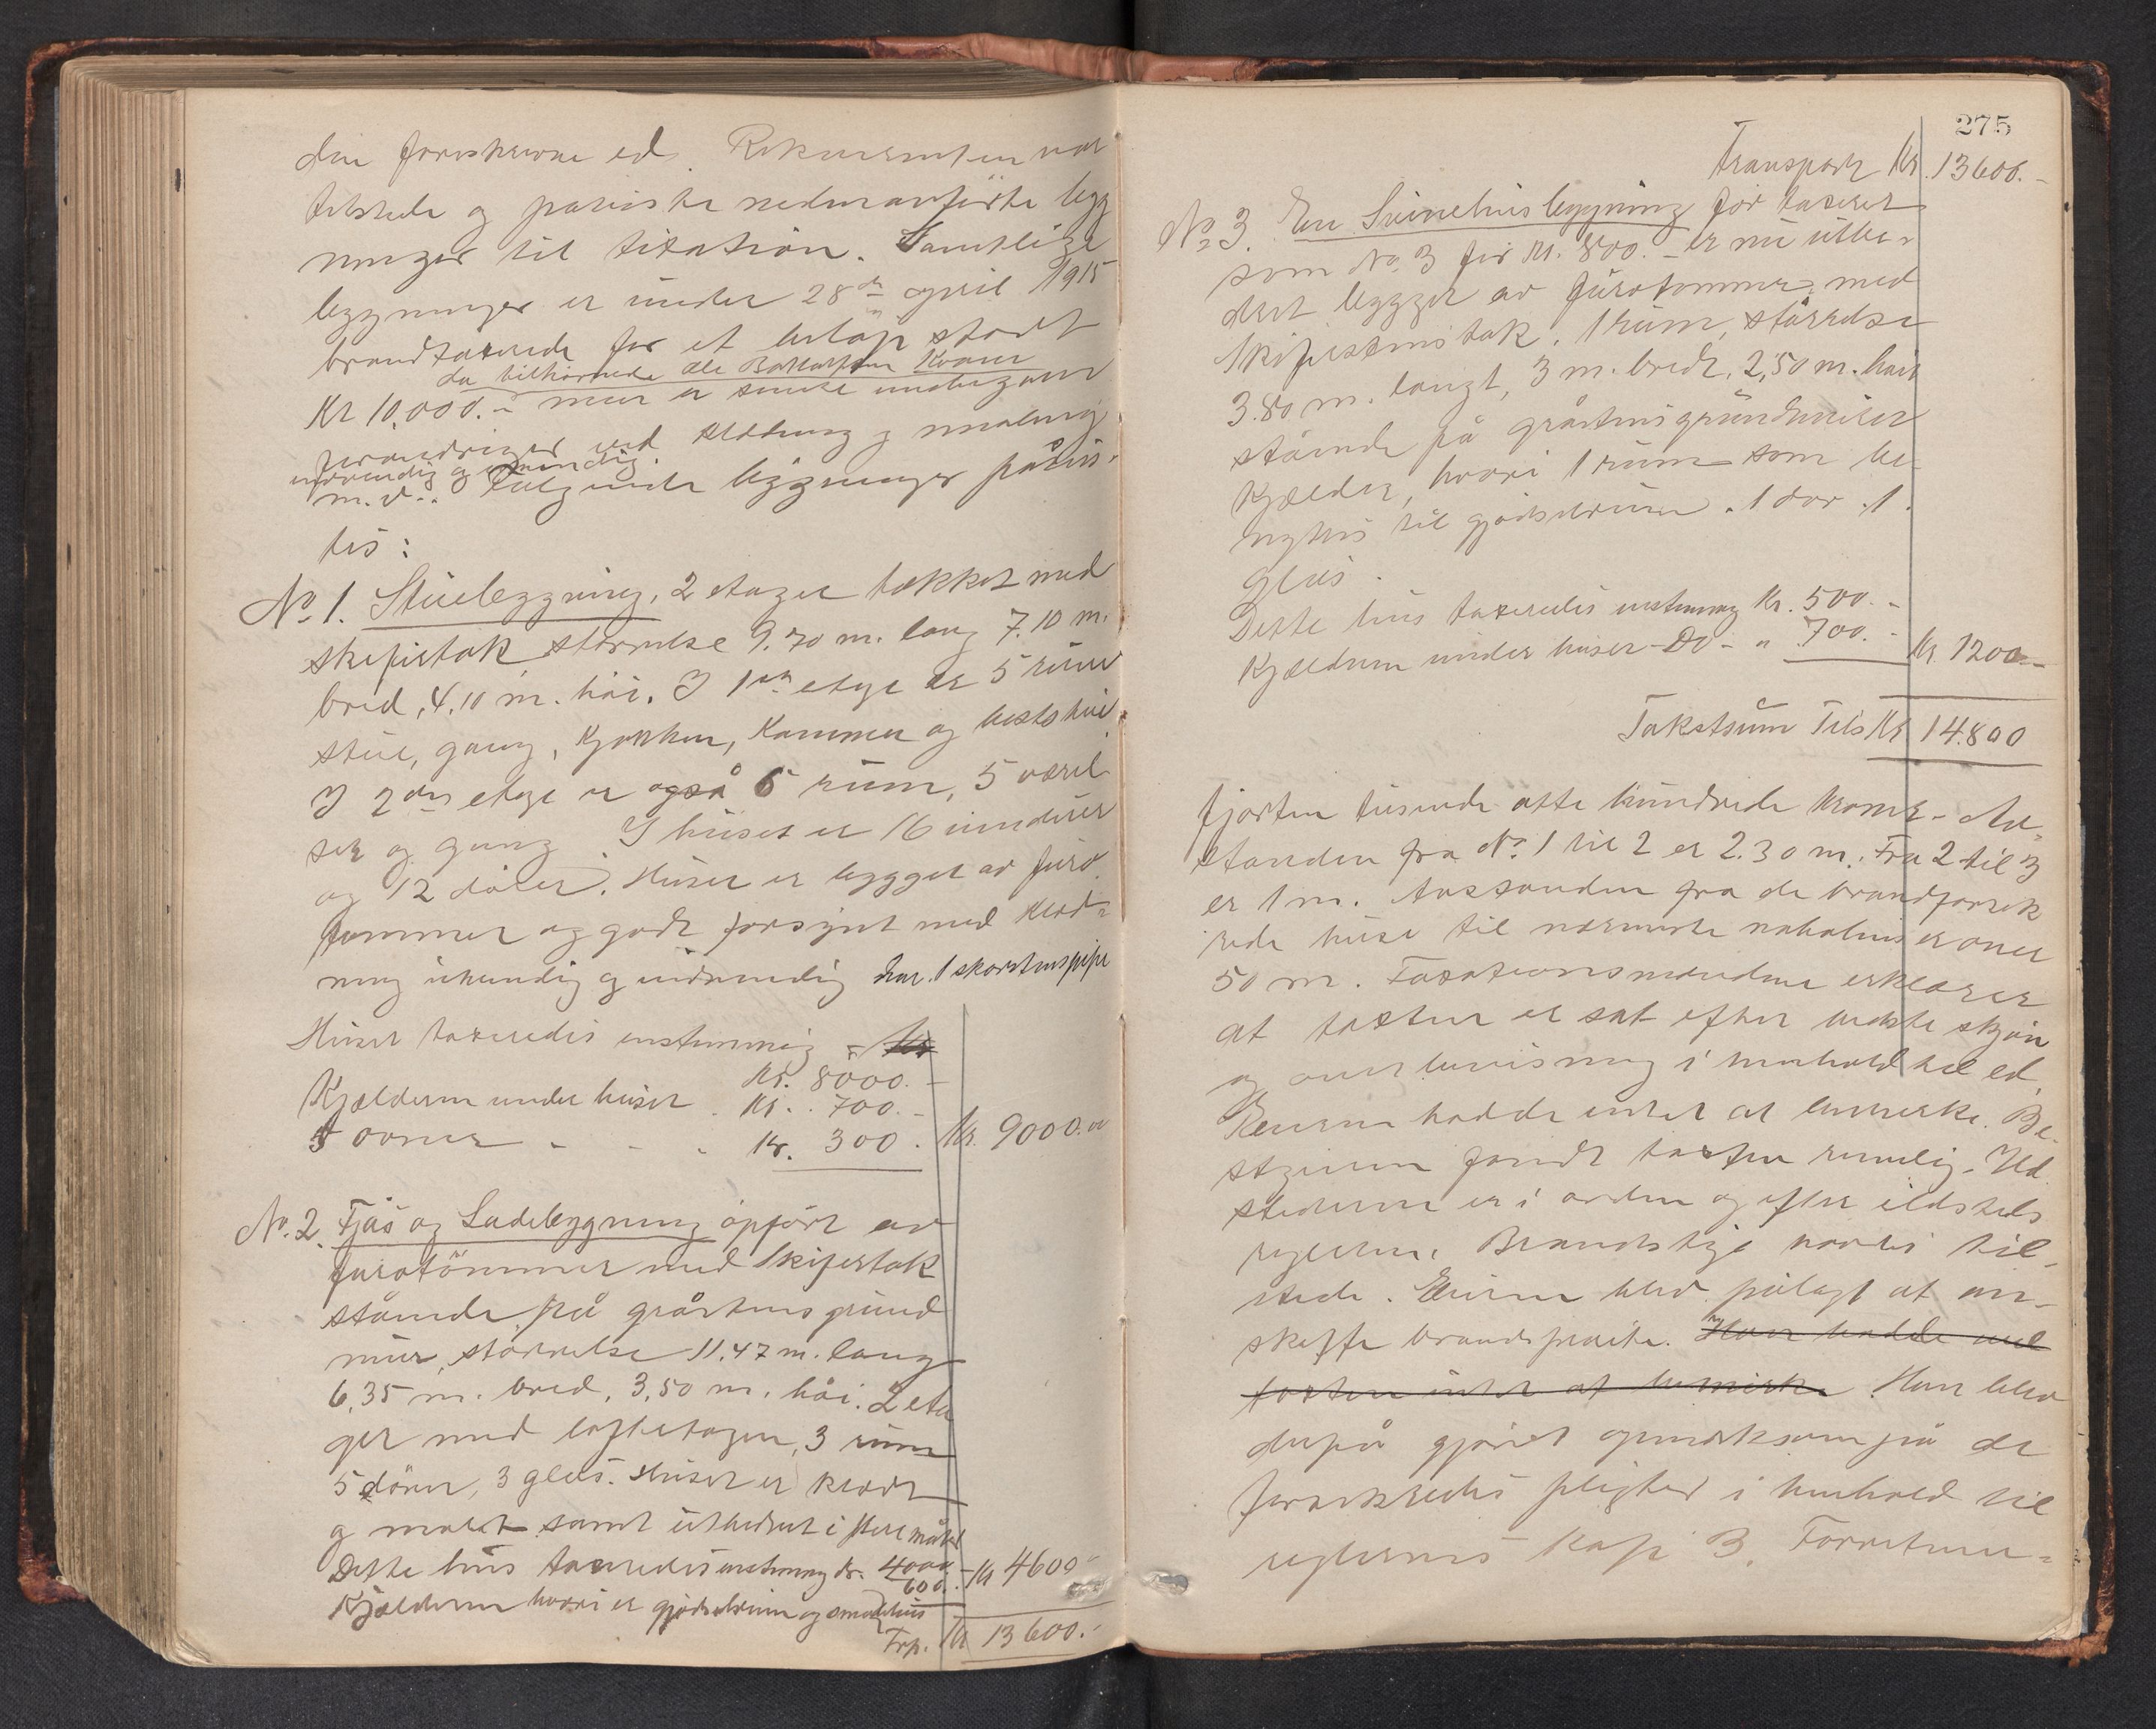 den foreskrevne ed. Rekvirenten var
tilstede og påviste nedenanførte byg
ninger til taxation. Samtlige
bygninger er under 28de april 1915
brandtaxerede for et beløp stort
da tilhørende Ole Kvam
Kr 10,000.- men er senere undergaaet
forandringer ved klædning og maling
utvendig og indvendig
m.v.. Følgende bygninger påvis-
tes:
No 1. Stuebygning, 2 etager tækket med
skifertak størrelse 9.70 m. lang 7.10 m.
bred, 4.10 m. høi. I 1ste etage er 5 rum
stue, gang, kjøkken, kammer og
I 2den etage er også 6 rum, 5 værel
ser og gang. I huset er 16 vinduer
og 12 dører. Huset er bygget av furu
tømmer og godt forsynt med klæd-
ning utvendig og indvendig har 1 skorstenspipe
Huset taxeredes enstemmig - Kr
Kr. 8000.-
Kjælderen under huset . Kr. . 700.-
5 ovner - - - Kr. 300. Kr. 9000.00
No. 2. Fjøs og Ladebygning opført av
furutømmer med skifertak
stående på gråstens grund
mur, størrelse 11.47 m. lang
6,35 m. bred, 3,50 m. høi. 2 eta
ger med loftetagen, 3 rum
5 dører, 3 glas. Huset er klædt
og malt samt utbedret i flere måter
Dette hus taxeredes enstemmig Kr. 4000
600.- Kr 4600-
Kjælderen hvori er gjødselrum og
Trp. Kr 13600.-
275
Transport Kr. 13600.-
No 3. En Svinehusbygning før taxeret
som No 3 for Kr. 800.- er nu utbe-
dret bygget av furutømmer med
skifertenstak. 1 rum, størrelse
3.80 m. langt, 3 m. bredt, 2,50 m. høit
stående på gråstensgrundmur
Kjælder, hvori 1 rum som be-
nyttes til gjødselrum. 1 dør. 1.
glas.
Dette hus taxeredes enstemmig Kr. 500.-
Kjælderen under huset - Do - " 700.- Kr. 1200.-
Takstsum Tils Kr 14800
fjorten tusende otte hundrede kroner - Av-
standen fra No 1 til 2 er 2.30 m. Fra 2 til 3
er 1 m. Avstanden fra de brandforsik
rede huse til nærmeste nabohus er over
50 m. Taxationsmændene erklærer
at taxten er sat efter bedste skjøn
og overbevisning i henhold til ed.
Eieren hadde intet at bemerke. Be-
styreren fandt taxten rimelig. Ild
stederne er i orden og efter ildsteds
reglerne. Brandstige var til-
stede. Eieren blev pålagt at an-
skaffe brandsprøite. Han hadde ved
taxten intet at bemerke. Han blev
derpå gjort opmerksom på de
forsikredes pligter i henhold til
reglernes kap 3. Forretnin-